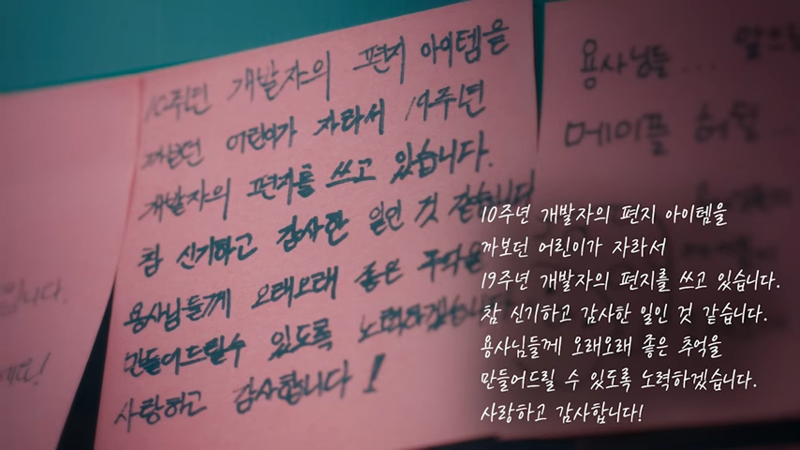 10주년 개발자의 편지 아이템을
까보던 어린이가 자라서 19주년
개발자의 편지를 쓰고 있습니다.
참 신기하고 감사한 일인 것 같습니다
용사님들께 오래오래 좋은 추억을
만들어드릴수 있도록 노력하겠습니다
사랑하고 감사합니다!
용사님들... 앞으로
메이플
니다.
10주년 개발자의 편지 아이템을
까보던 어린이가 자라서
19주년 개발자의 편지를 쓰고 있습니다.
참 신기하고 감사한 일인 것 같습니다.
용사님들께 오래오래 좋은 추억을
만들어드릴 수 있도록 노력하겠습니다.
사랑하고 감사합니다!